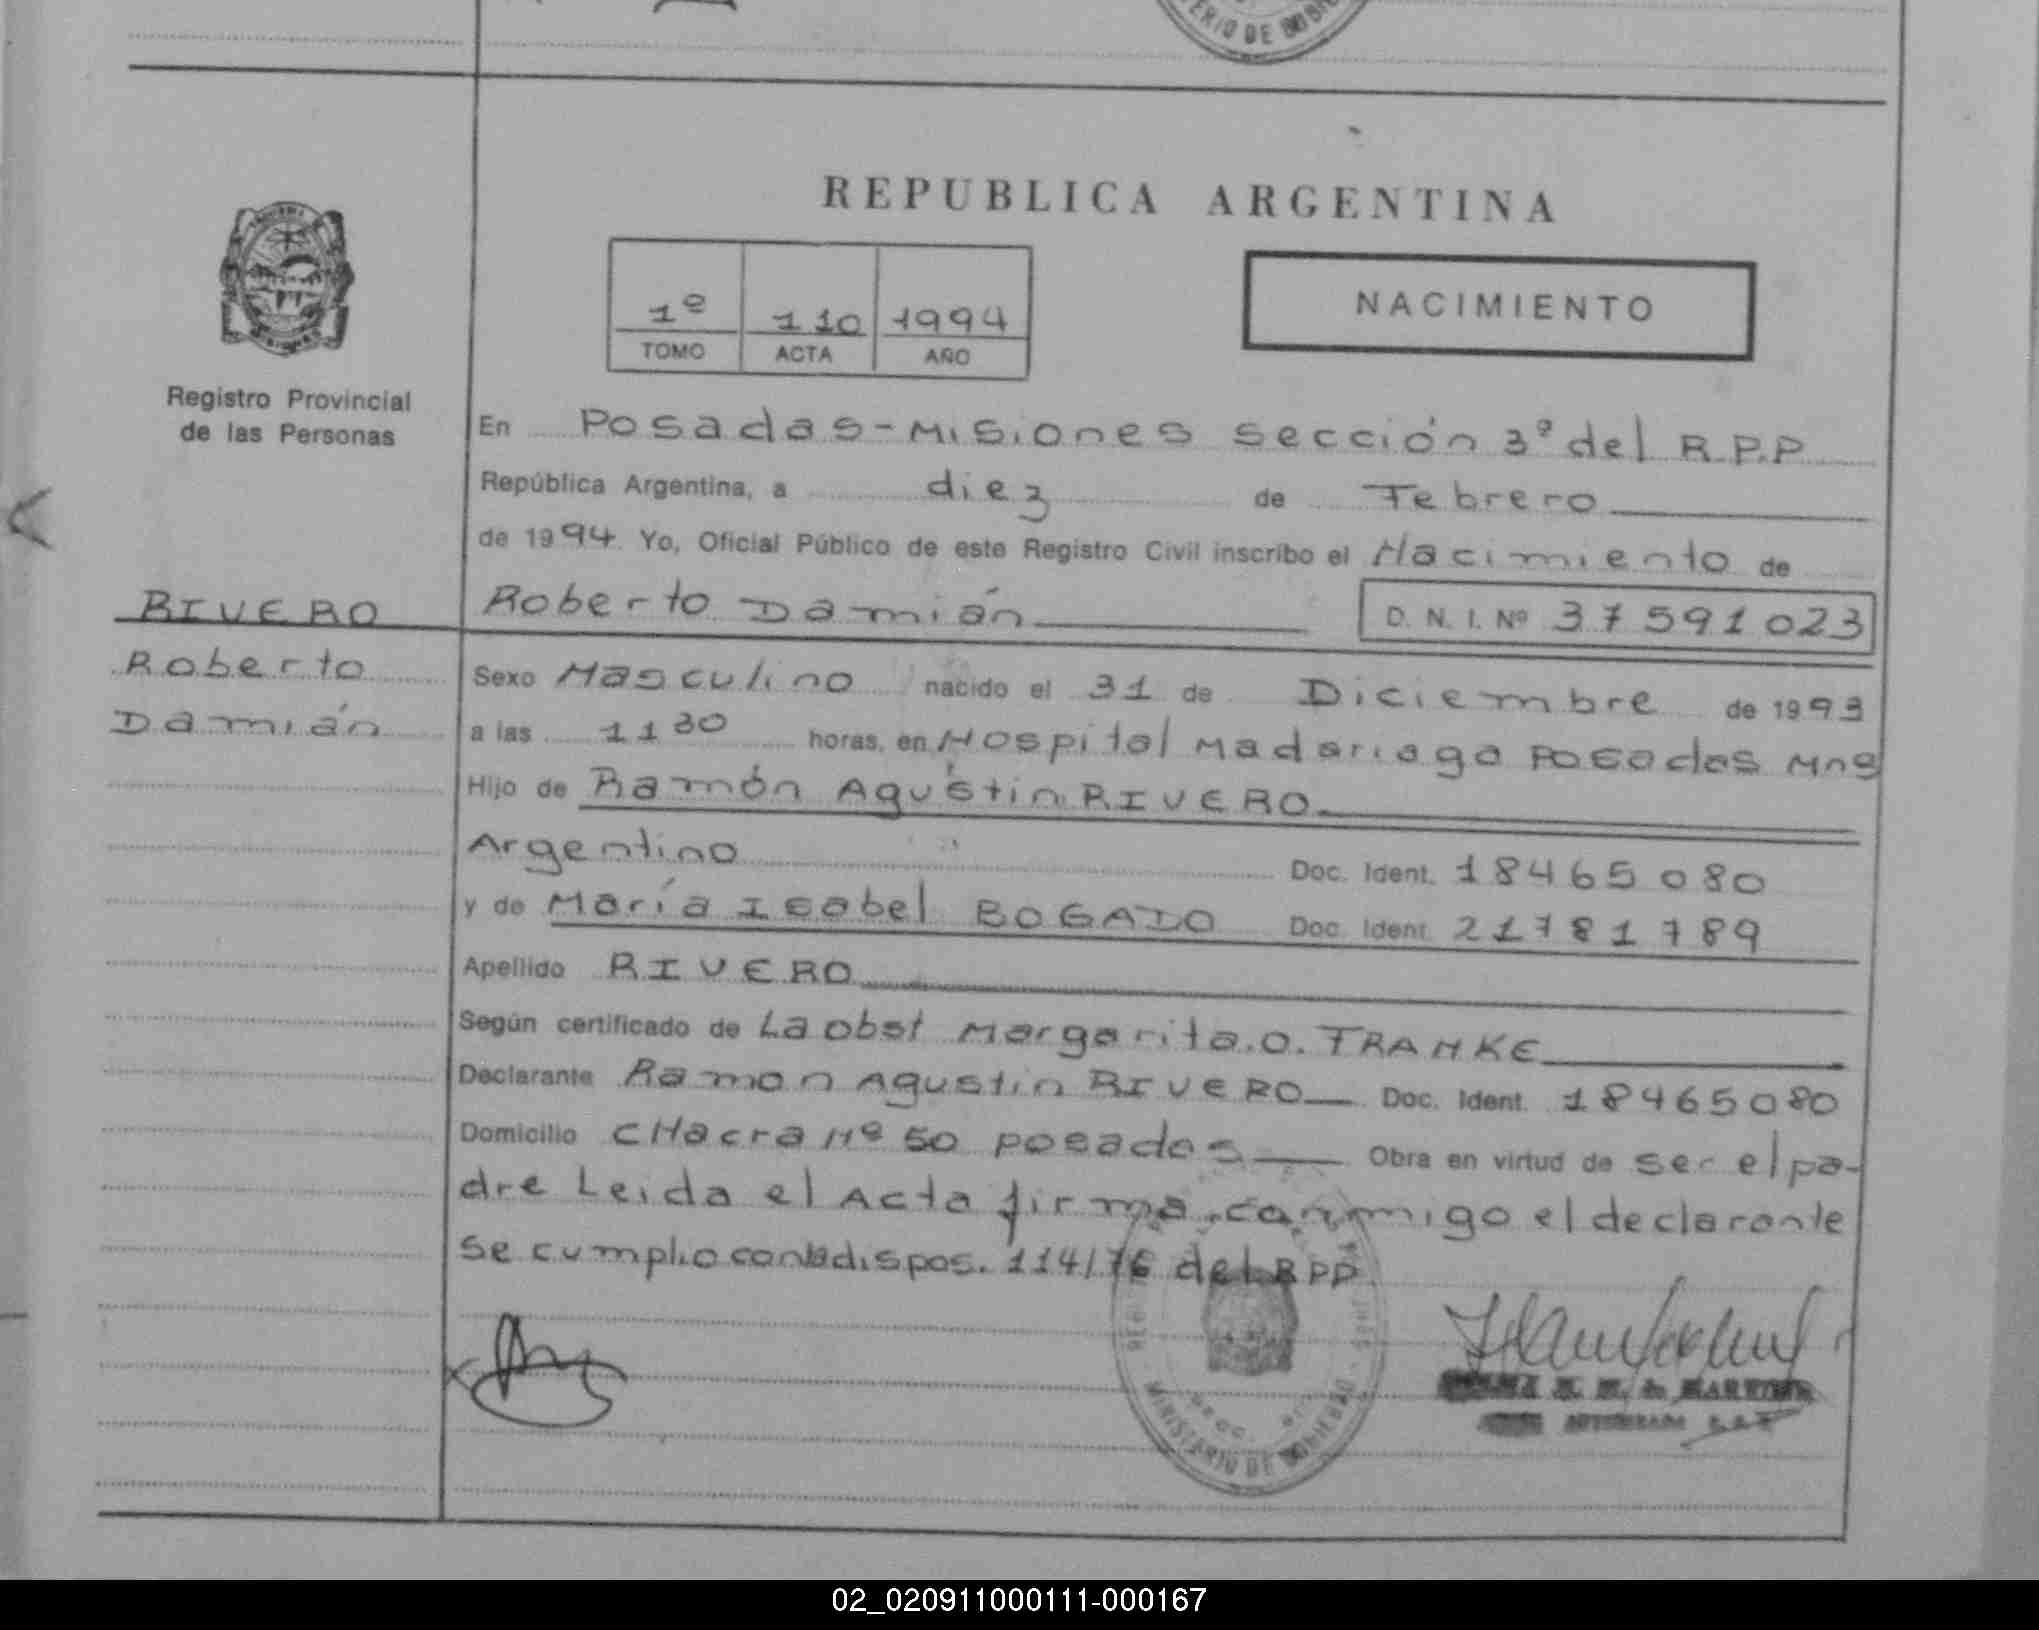 ERIO DE GOBIE
REPUBLICA ARGENTINA
1º 110 1994
TOMO ACTA AÑO
NACIMIENTO
Registro Provincial
de las Personas
En Posadas-Misiones sección 3ª del R.P.P
República Argentina, a diez de Febrero
de 1994 Yo, Oficial Público de este Registro Civil inscribo el Nacimiento de
Roberto Damián D. N. I. Nº 37591023
RIVERO
Roberto
Damián
Sexo Masculino nacido el 31 de Diciembre de 1993
a las 11 30 horas, en Hospital Madariaga Posadas Mns
Hijo de Ramón Agustín RIVERO
Argentino Doc. Ident. 18465080
y de María Isabel BOGADO Doc. Ident. 21781789
Apellido RIVERO
Según certificado de La obst Margarita.O. TRANKE
Declarante Ramon Agustin RIVERO Doc. Ident. 18465080
Domicilio CHacra Nº 50 posadas Obra en virtud de ser el pa-
dre Leida el Acta firma conmigo el declarante
Se cumplio con la dispos. 114/76 del RPP
MINISTERIO DE GOBIERNO
02_020911000111-000167